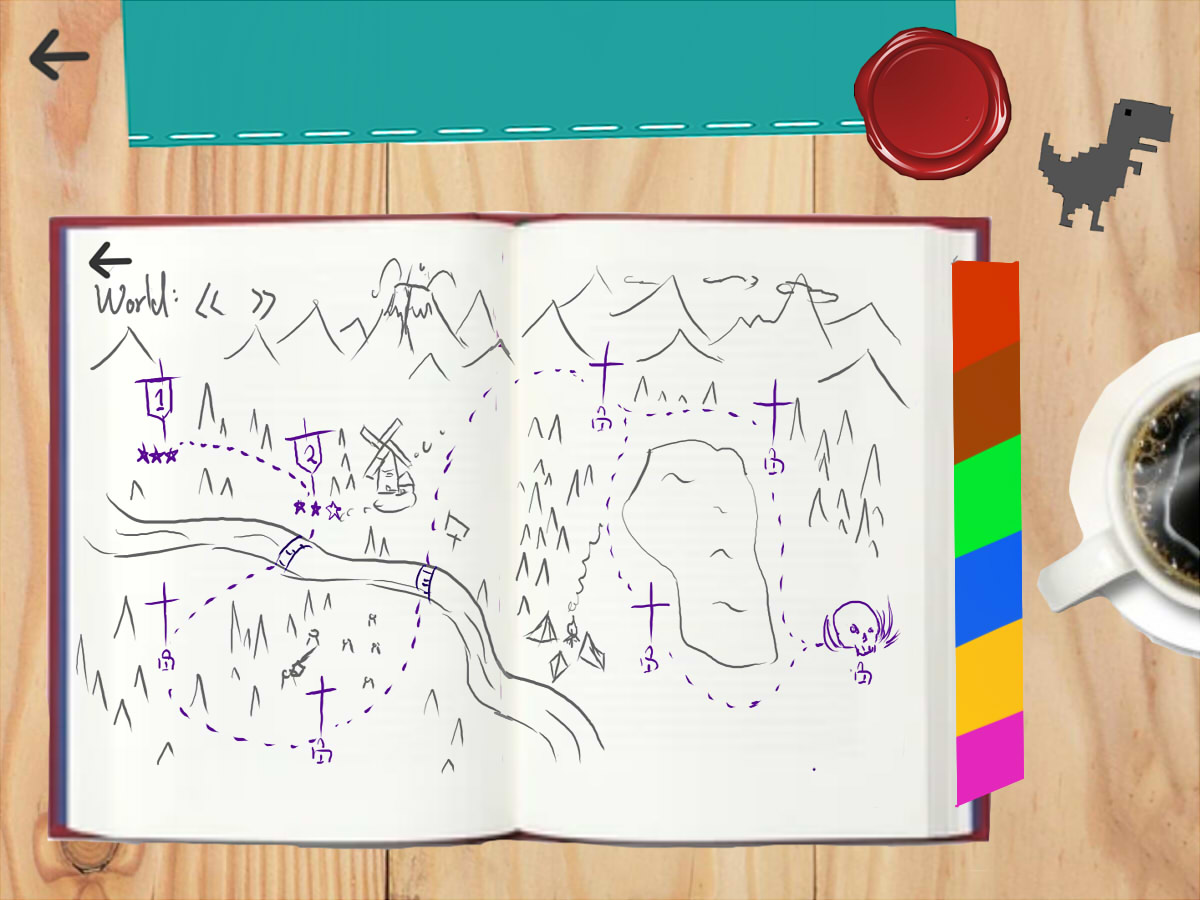 World: << >>
1
2